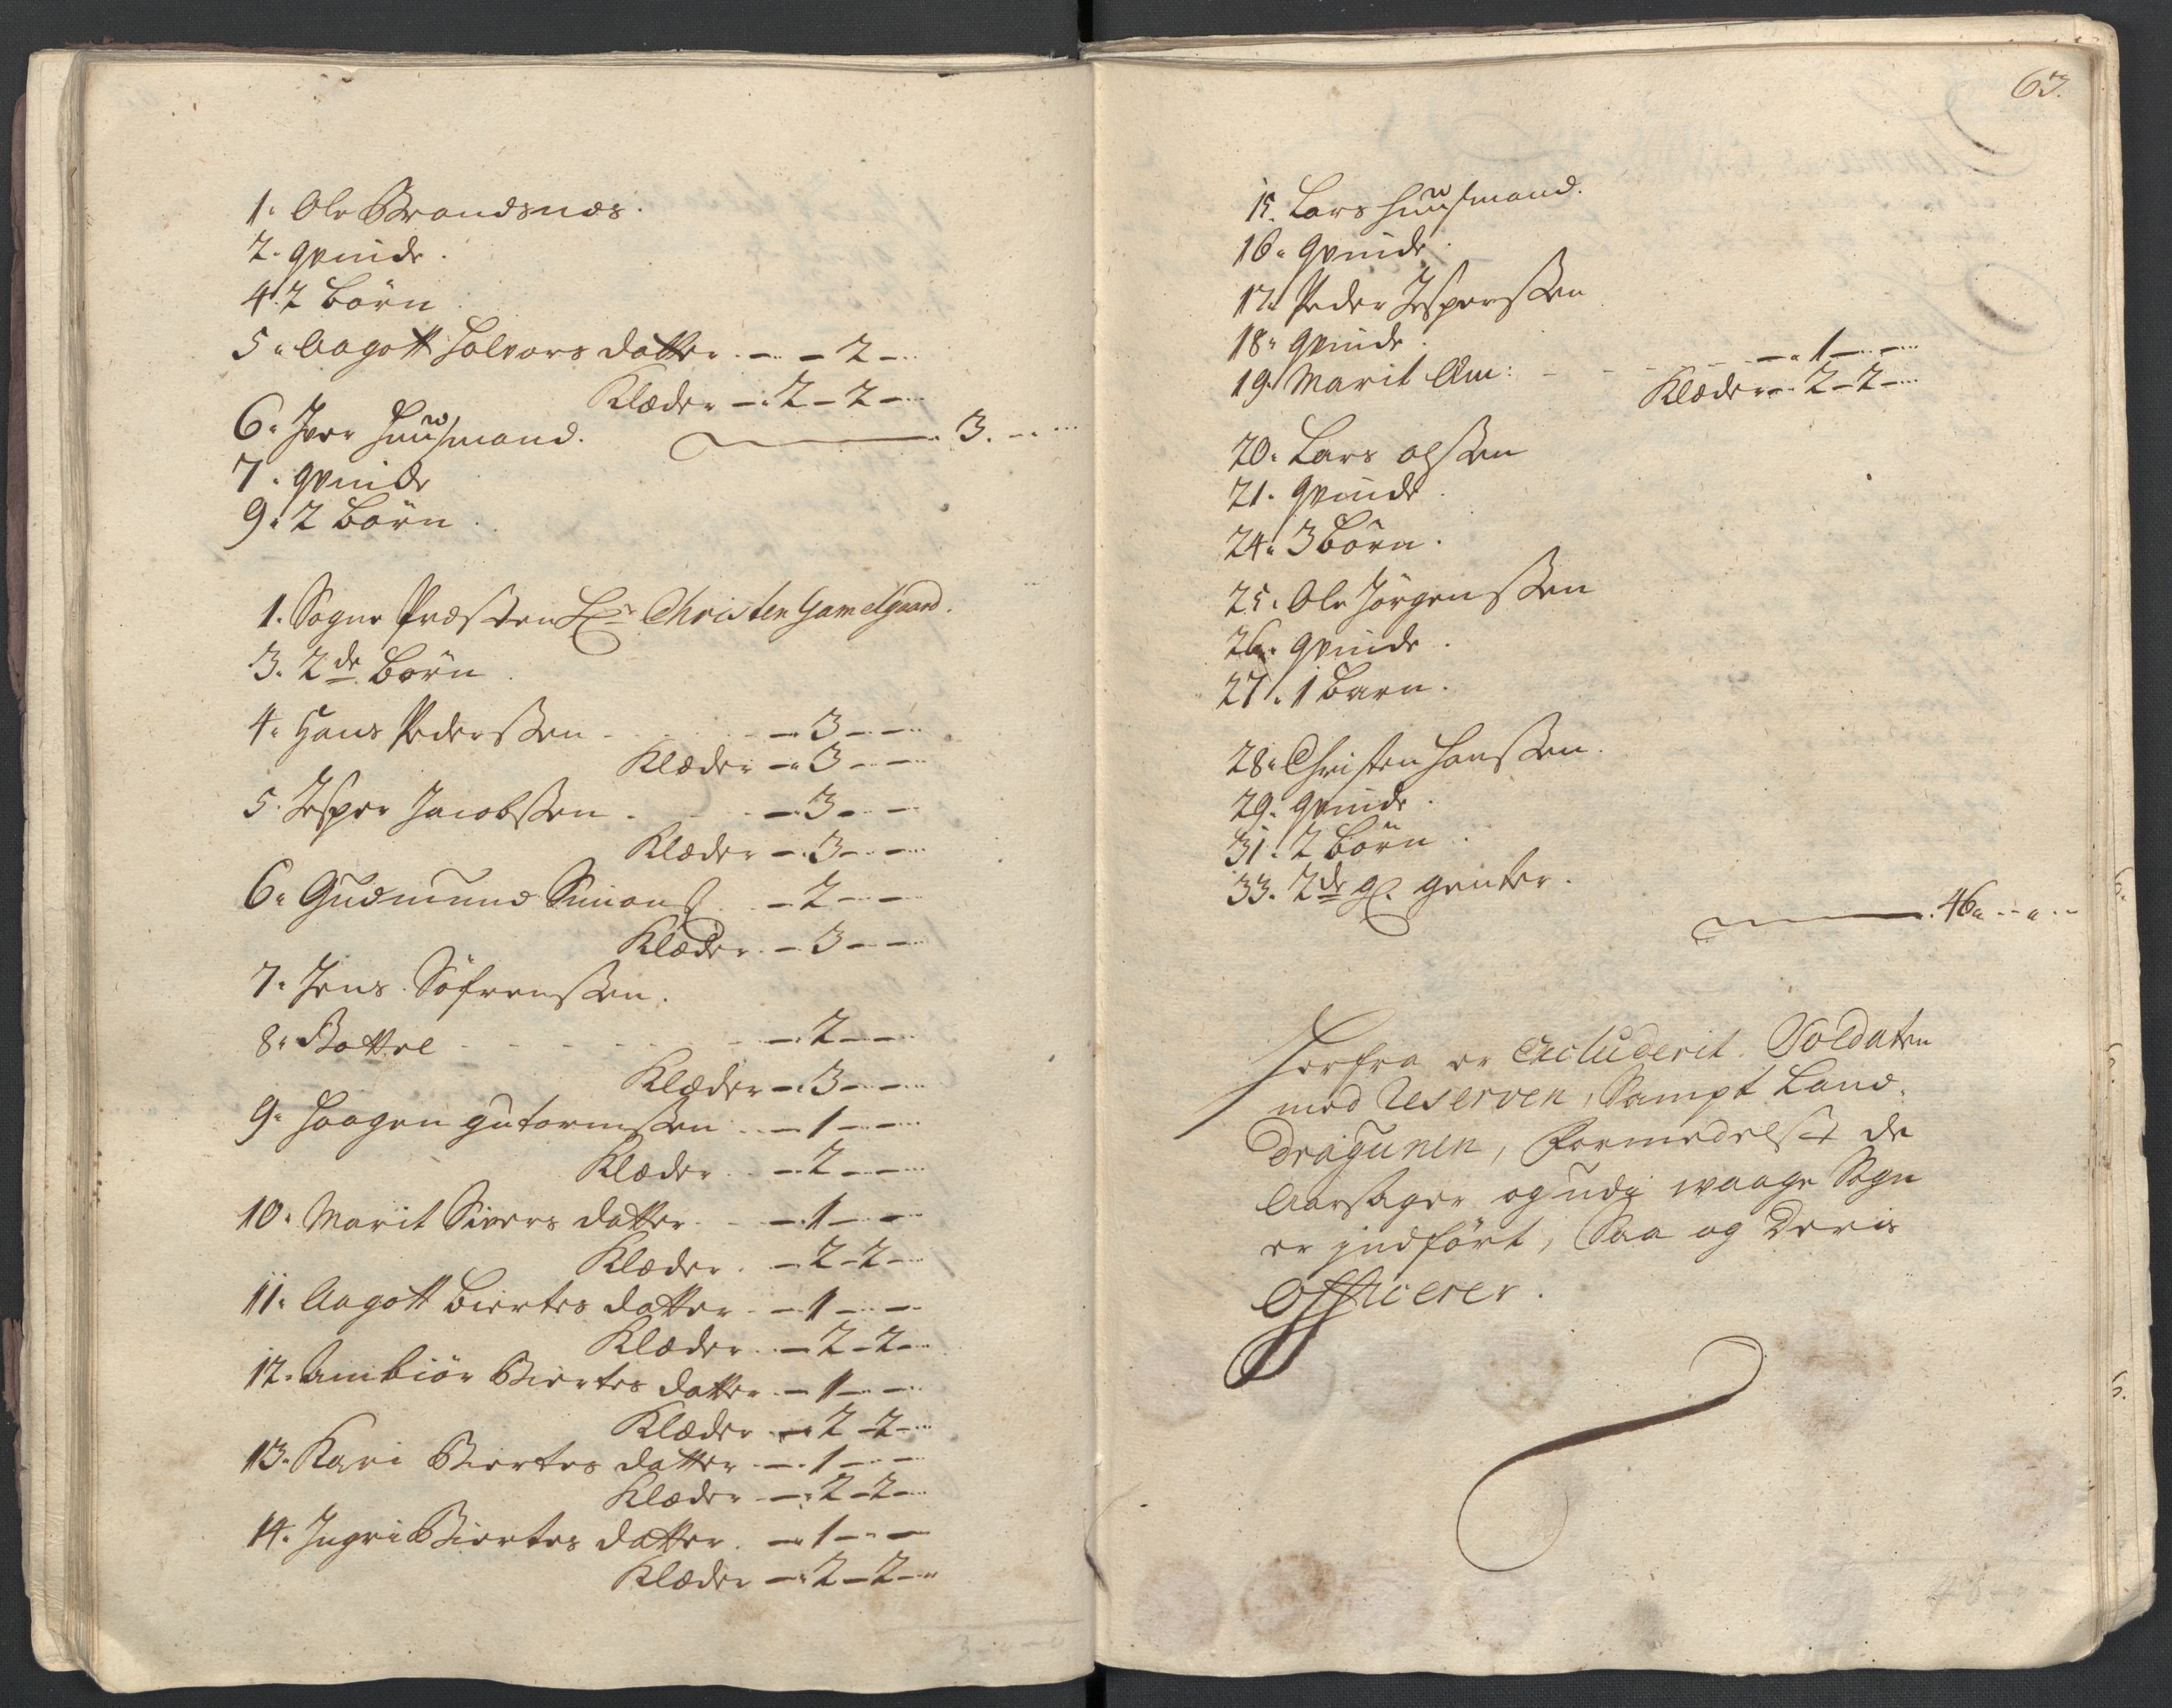 1. Ole Brandsnæs.
2. qvinde.
4. 2 börn
5. Aagott Halvors datter. – – 2 –
Klæder – 2 – 2 –
6. Iver Huusmand. 3.
7. qvinde
9. 2 börn.
1. Sogne Præsten Hr. Christen Gamelgaard.
3. 2de. börn.
4. Hans Pederssen – 3 – –
Klæder – 3 – –
5. Jesper Jacobssen – 3 – –
Klæder – 3 – –
6. Gudmund Simons. – 2 – –
Klæder – 3 – –
7. Jens Söfrenssen.
8. Bottel – 2 – –
Klæder – 3 – –
9. Haagen gutormssen – 1 – –
Klæder – 2 – –
10. Marit Sivers datter – 1 – –
Klæder – 2 – 2 –
11. Aagott Biertes datter – 1 – –
Klæder – 2 – 2 –
12. Anbiör Biertes datter – 1 – –
Klæder – 2 – 2 –
13. Kari Biertes datter – 1 – –
Klæder – 2 – 2 –
14. Ingri Biertes datter – 1 – –
Klæder – 2 – 2 –
3 – 0 – 0
63.
15. Lars Huusmand.
16. qvinde.
17. Peder Jesperssen
18. qvinde.
19. Marit Am: – 1 – –
Klæder – 2 – 2 –
20. Lars olssen
21. qvinde.
24. 3 börn.
25. Ole Jörgenssen
26. qvinde.
27. 1 barn.
28. Christen Hanssen.
29. qvinde.
31. 2 börn.
33. 2de gl. genter.
46.
Herfra er Excluderit Soldaten
med Reserven, Sampt Land-
Dragunen, formedelst de
Aarsager og udj waage Sogn
er jndfört, Saa og Deris
Officerer.